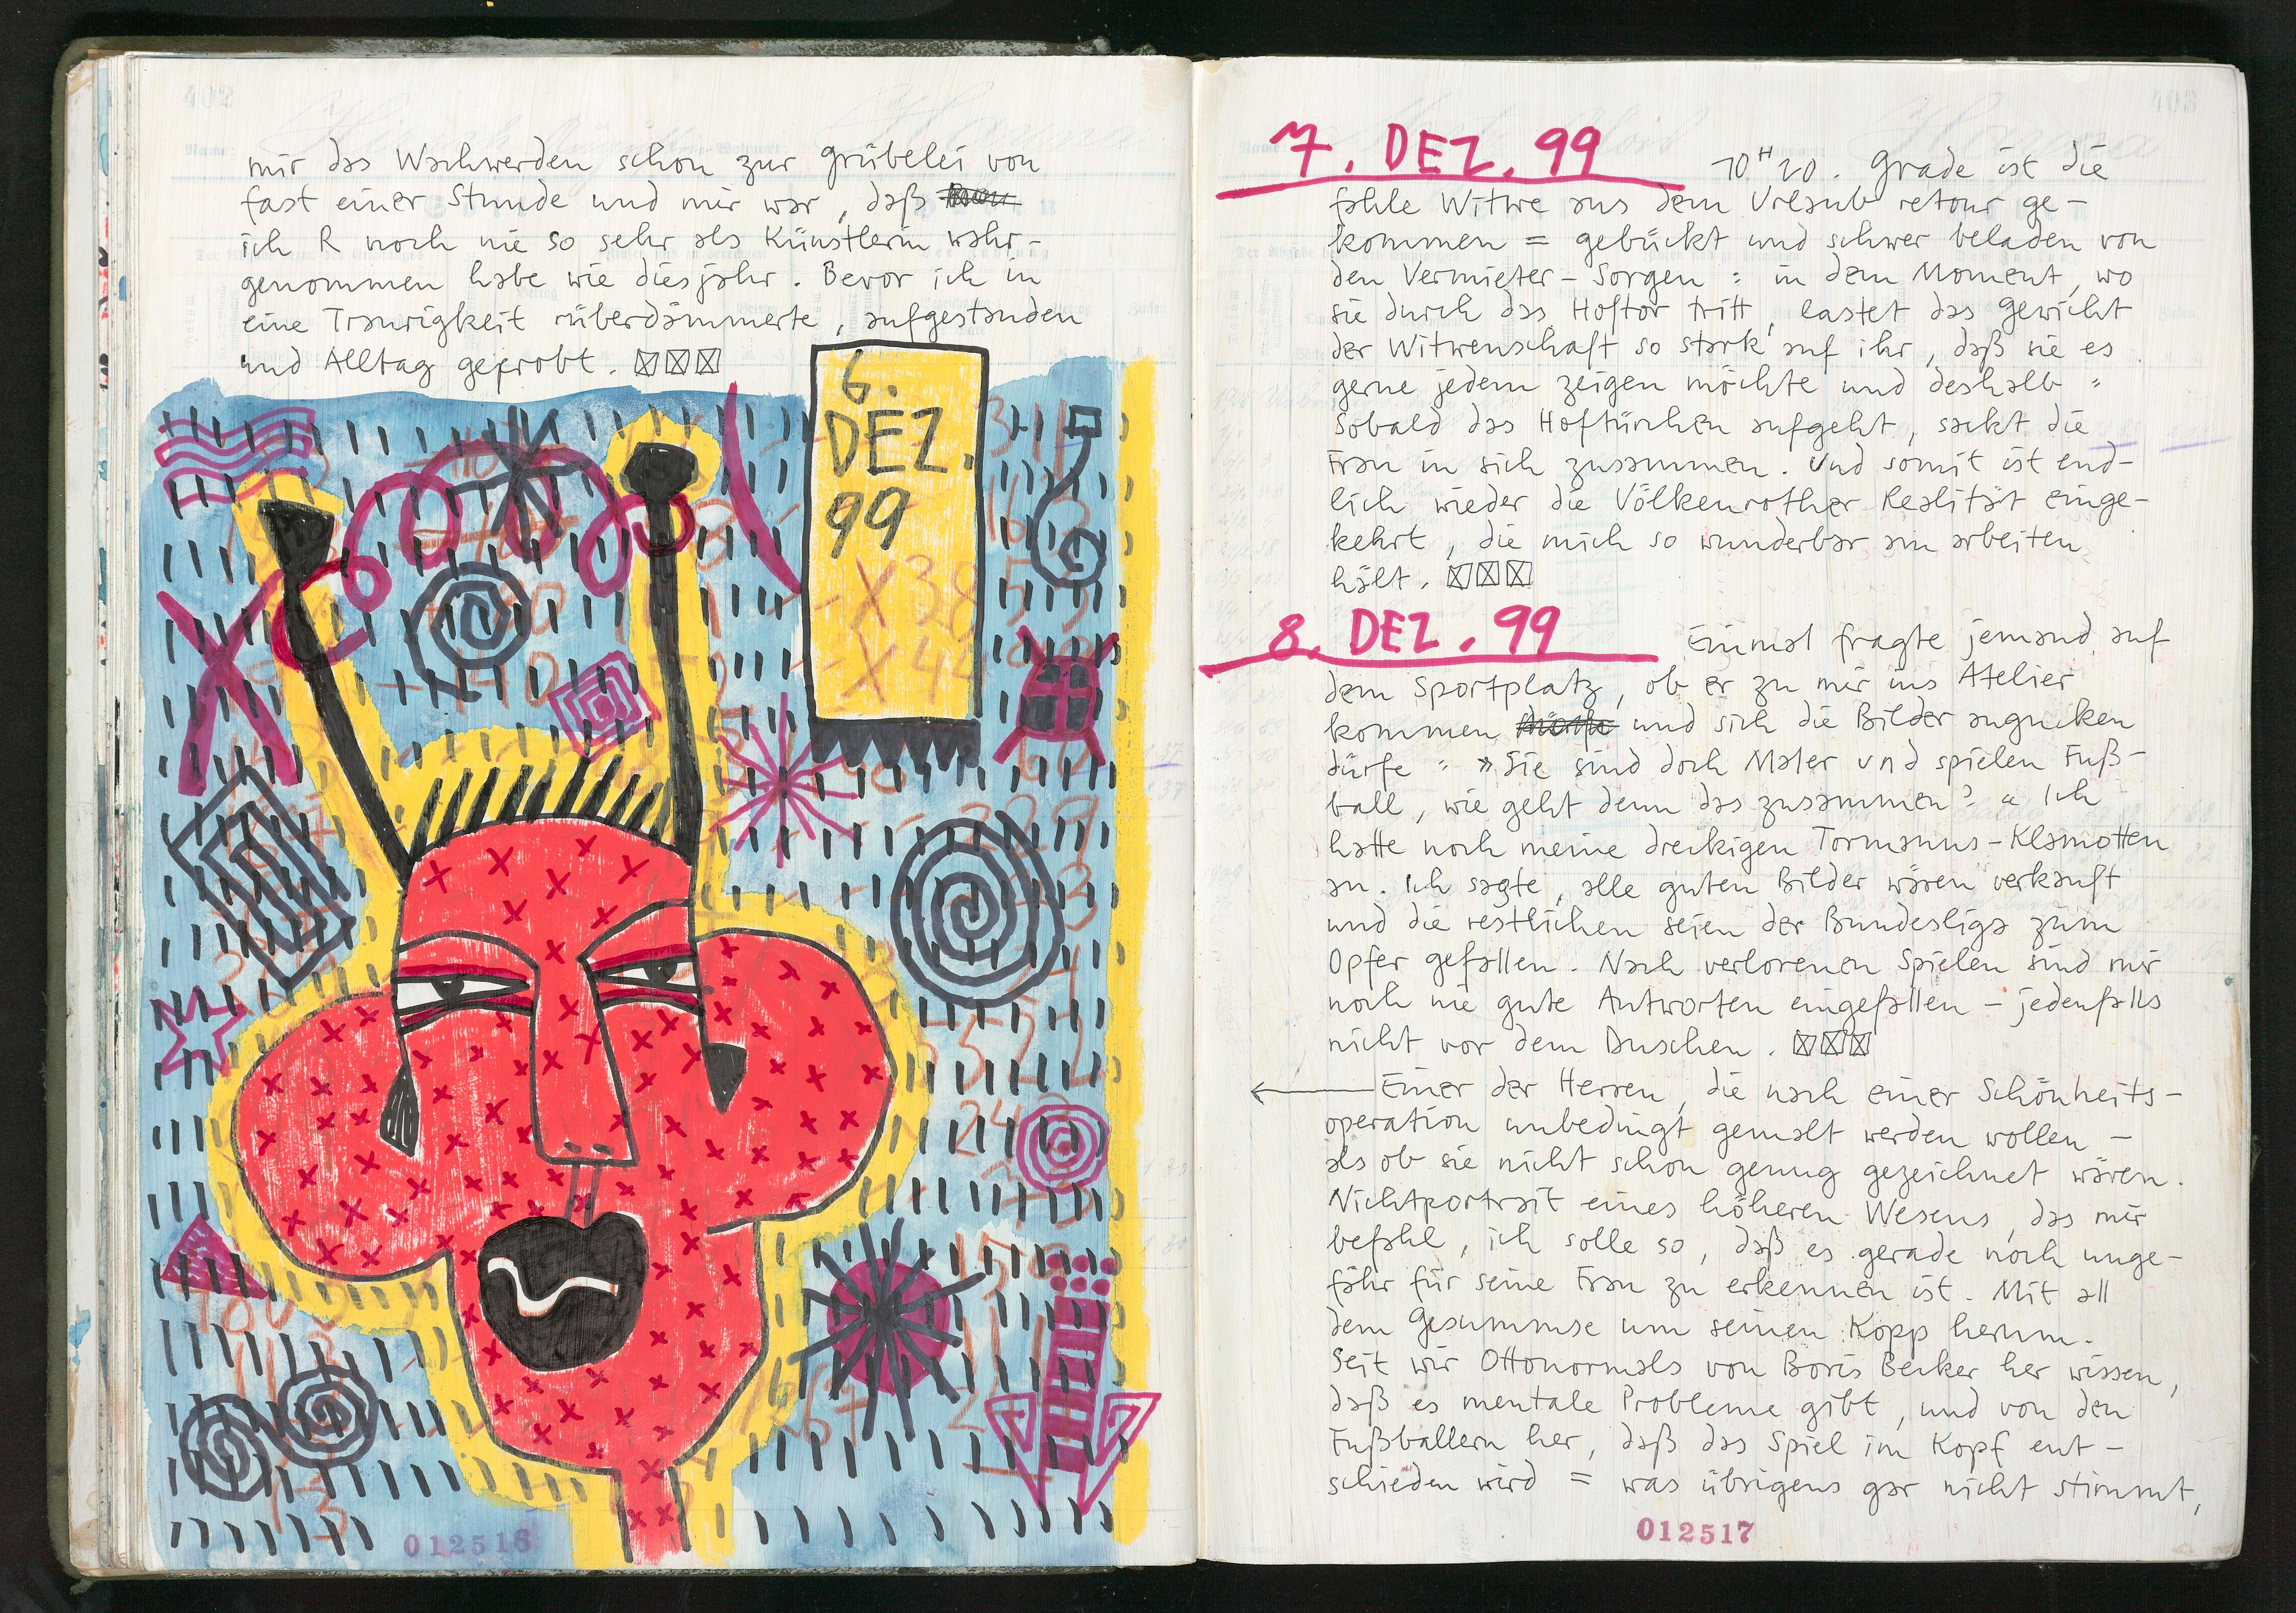 402
mir das Wachwerden schon zur Grübelei von
fast einer Stunde und mir war, daß
ich R noch nie so sehr als Künstlerin wahr-
genommen habe wie diesjahr. Bevor ich in
eine Traurigkeit rüberdämmerte, aufgestanden
und Alltag geprobt.
6.
DEZ.
99
-X38
-X44
012516
403
7. DEZ. 99
10H20. Grade ist die
fahle Witwe aus dem Urlaub retour ge-
kommen = gebückt und schwer beladen von
den Vermieter-Sorgen : in dem Moment, wo
sie durch das Hoftor tritt, lastet das Gewicht
der Witwenschaft so stark auf ihr, daß sie es
gerne jedem zeigen möchte und deshalb =
Sobald das Hoftürchen aufgeht, sackt die
Frau in sich zusammen. Und somit ist end-
lich wieder die Völkenrother Realität einge-
kehrt, die mich so wunderbar am arbeiten
hält.
8. DEZ. 99
Einmal fragte jemand auf
dem Sportplatz, ob er zu mir ins Atelier
kommen und sich die Bilder angucken
dürfe = »Sie sind doch Maler und spielen Fuß-
ball, wie geht denn das zusammen?« Ich
hatte noch meine dreckigen Tormanns-Klamotten
an. Ich sagte, alle guten Bilder wären verkauft
und die restlichen seien der Bundesliga zum
Opfer gefallen. Nach verlorenen Spielen sind mir
noch nie gute Antworten eingefallen – jedenfalls
nicht vor dem Duschen.
Einer der Herren, die nach einer Schönheits-
operation unbedingt gemalt werden wollen –
als ob sie nicht schon genug gezeichnet wären.
Nichtportrait eines höheren Wesens, das mir
befahl, ich solle so, daß es gerade noch unge-
fähr für seine Frau zu erkennen ist. Mit all
dem Gesummse um seinen Kopp herum.
Seit wir Ottonormals von Boris Becker her wissen,
daß es mentale Probleme gibt, und von den
Fußballern her, daß das Spiel im Kopf ent-
schieden wird = was übrigens gar nicht stimmt,
012517